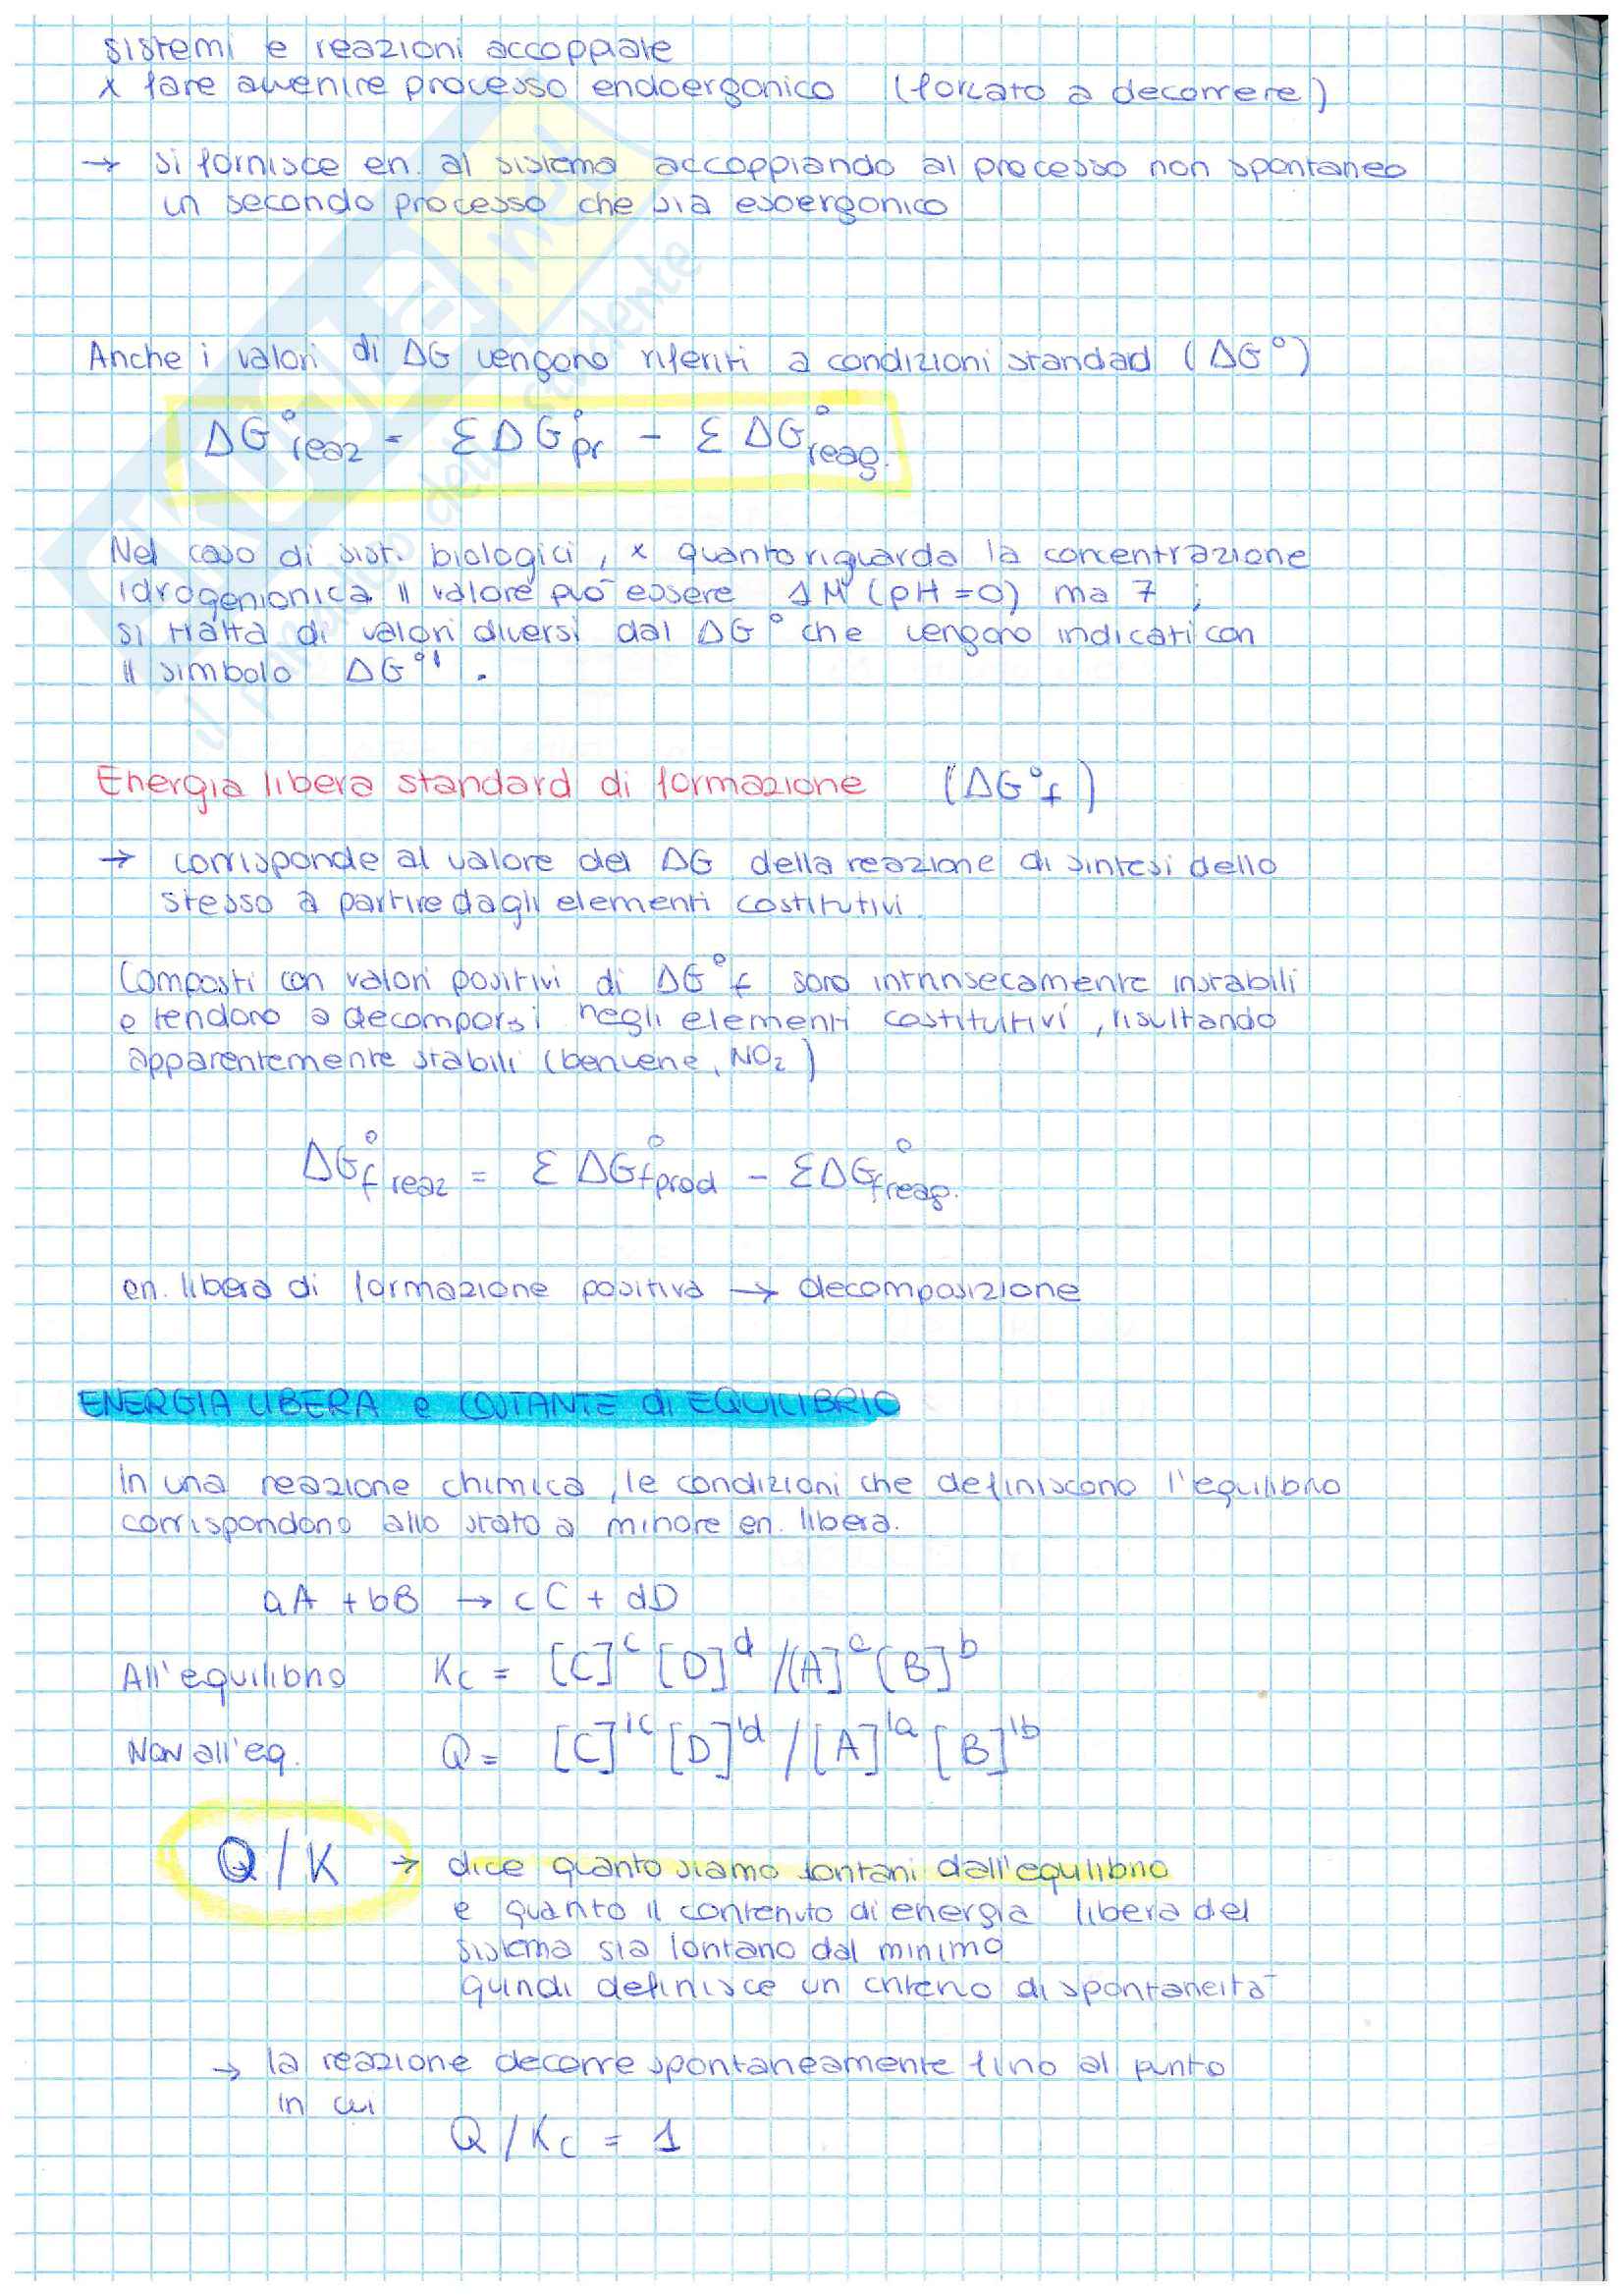 sistemi e reazioni accoppiate
x fare avvenire processo endoergonico (forzato a decorrere)
→ si fornisce en. al sistema accoppiando al processo non spontaneo
un secondo processo che sia esoergonico
Anche i valori di ΔG vengono riferiti a condizioni standad (ΔG°)
ΔG°reaz = ΣΔG°pr - ΣΔG°reag.
Nel caso di sist. biologici, x quanto riguarda la concentrazione
idrogenionica il valore può essere 1M (pH=0) ma 7 ;
si tratta di valori diversi dal ΔG° che vengono indicati con
il simbolo ΔG°' .
Energia libera standard di formazione (ΔG°f)
→ corrisponde al valore del ΔG della reazione di sintesi dello
stesso a partire dagli elementi costitutivi.
Composti con valori positivi di ΔG°f sono intrinsecamente instabili
e tendono a decomporsi negli elementi costituitivi, risultando
apparentemente stabili (benzene, NO₂)
ΔG°f reaz = ΣΔG°f prod - ΣΔG°f reag.
en. libera di formazione positiva → decomposizione
ENERGIA LIBERA e COSTANTE di EQUILIBRIO
in una reazione chimica, le condizioni che definiscono l'equilibrio
corrispondono allo stato a minore en. libera.
aA + bB → cC + dD
All'equilibrio Kc = [C]ᶜ [D]ᵈ /[A]ᵃ [B]ᵇ
Non all'eq. Q = [C]'ᶜ [D]'ᵈ / [A]'ᵃ [B]'ᵇ
Q/K → dice quanto siamo lontani dall'equilibrio
e quanto il contenuto di energia libera del
sistema sia lontano dal minimo
quindi definisce un criterio di spontaneità
→ la reazione decorre spontaneamente fino al punto
in cui
Q/Kc = 1